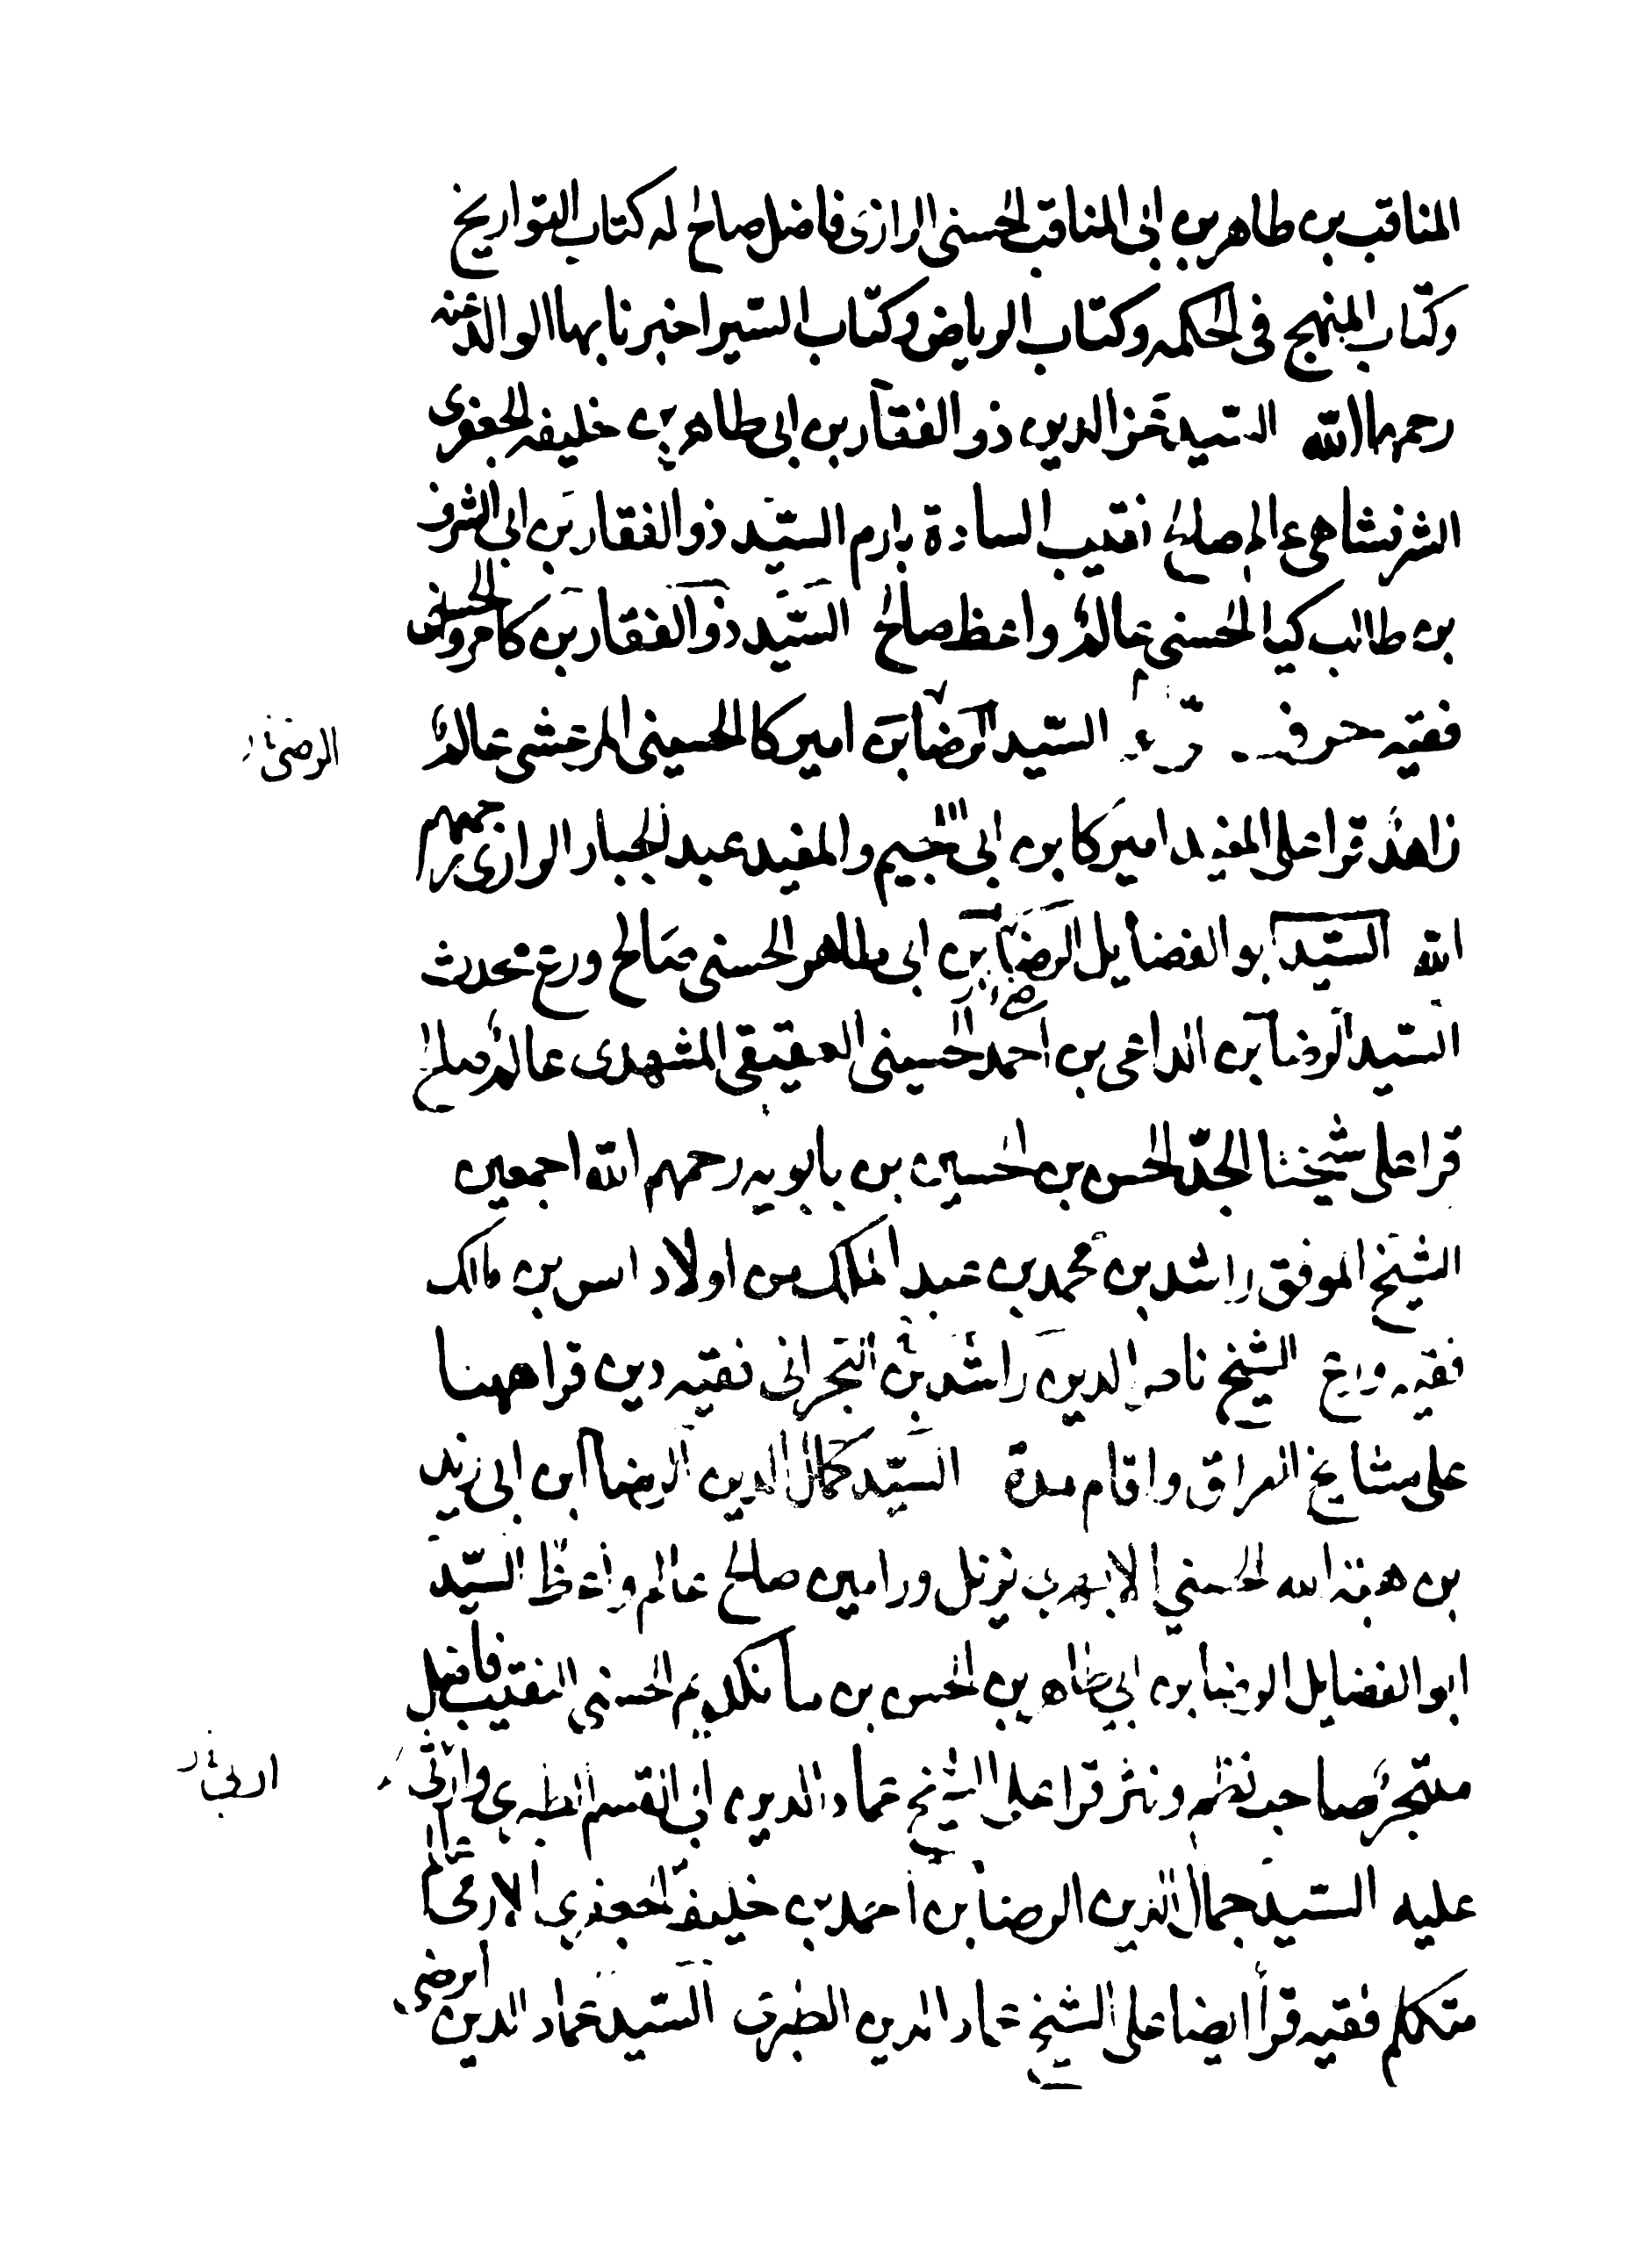 المناقب بن طاهر بن ابى المناقب الحسنى الرازى فاضل صالح له كتاب التواريخ
وكتاب المنهج فى الحكمه وكتاب الرياض وكتاب السير اخبرنا بها الوالد عنه
رحمهما الله السيد عز الدين ذو الفقار بن ابى طاهر بن خليفه الجعفرى
الشرفشاهى عالم صالح نقيب السادة بارم السيد ذو الفقار بن ابى الشرف
بن طالب كيا الحسنى عالم واعظ صالح السيد ذو الفقار بن كامرو الحسنى
فقيه السيد الرضا بن اميركا الحسينى المرعشى عالم
الرضى
زاهد قرا على المفيد اميركا بن ابى اللجيم والمفيد عبد الجبار الرازى رحمهم
الله السيد ابو الفضايل الرضا بن ابى طاهر الحسنى صالح ورع محدث
السيد الرضا بن الداعى بن احمد الحسينى العقيقى المشهدى عالم صالح
قرا على شيخنا الجد الحسن بن الحسين بن بابويه رحمهم الله اجمعين
الشيخ الموفق راشد بن محمد بن عبد الملك من اولاد انس بن مالك
فقيه ورع الشيخ ناصر الدين راشد بن البحرانى فقيه دين قرا ههنا
على مشايخ العراق واقام مدة السيد كمال الدين الرضا ابن ابى زيد
بن هبة الله الحسنى الابهرى نزيل ورامين صالح عالم واعظ السيد
ابو الفضايل الرضا بن ابى طاهر بن الحسن بن مانكديم الحسنى النقيب فاضل
متبحر صاحب نظم ونثر قرا على الشيخ عماد الدين ابى القسم الطبرى وقرأتُ
عليه السيد جمال الدين الرضا بن احمد بن خليفة الجعفرى الارمى عالم
متكلم فقيه قرأ ايضا على الشيخ عماد الدين الطبرى السيد عماد الدين الرضى